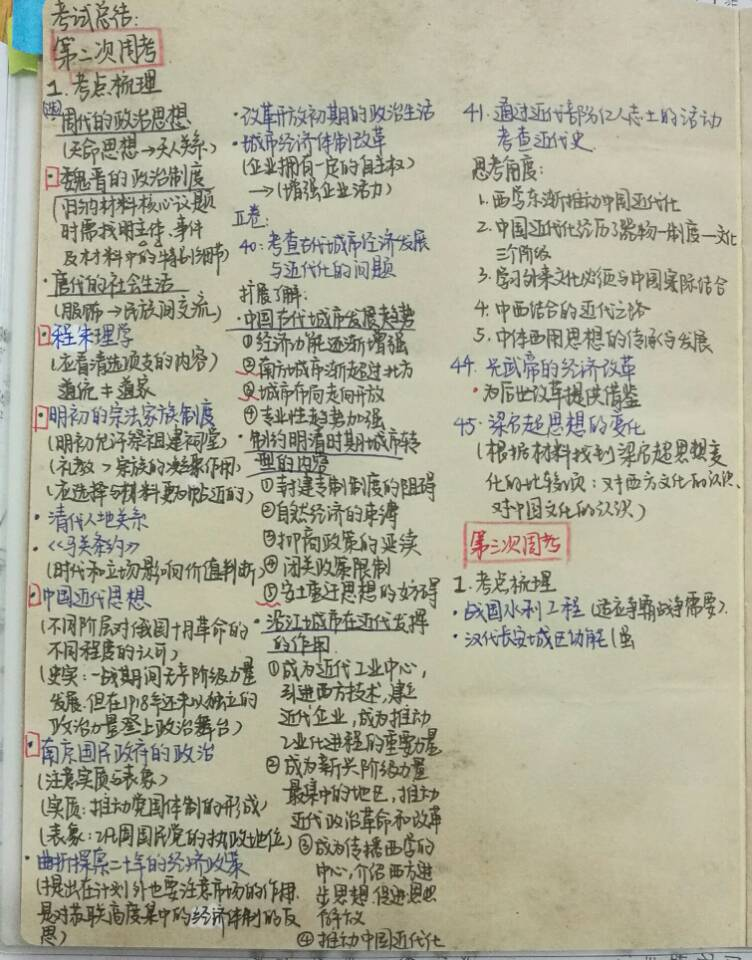 考试总结:
第二次周考
1. 考点梳理
周代的政治思想
(天命思想→天人关系)
·魏晋的政治制度
(归纳材料核心议题
时需找明主体、事件
及材料中的特别细节)
·唐代的社会生活
(服饰→民族间交流)
·程朱理学
(应看清选项支的内容)
道统≠道家
·明初的宗法家族制度
(明初允许祭祖建祠堂)
(礼教>宗族的凝聚作用)
(应选择与材料更为贴近的)
·清代人地关系
·《马关条约》
(时代和立场影响价值判断)
·中国近代思想
(不同阶层对俄国十月革命的
不同程度的认可)
(史实:一战期间无产阶级力量
发展.但在1918年还未以独立的
政治力量登上政治舞台)
·南京国民政府的政治
(注意实质与表象)
(实质:推动党国体制的形成)
(表象:巩固国民党的执政地位)
·曲折探索二十年的经济政策
(提出在计划外也要注意市场的作用.
是对苏联高度集中的经济体制的反
思)
·改革开放初期的政治生活
·城市经济体制改革
(企业拥有一定的自主权)
→(增强企业活力)
正卷:
40:考查古代城市经济发展
与近代化的问题
扩展了解:
·中国古代城市发展趋势
①经济功能逐渐增强
②南方城市渐超过北方
③城市布局走向开放
④专业性趋势加强
·制约明清时期城市转
型的内容
①封建专制制度的阻碍
②自然经济的束缚
③抑商政策的延续
④闭关政策限制
⑤安土重迁思想的妨碍
·沿江城市在近代发挥
的作用
①成为近代工业中心,
引进西方技术,建立
近代企业,成为推动
工业化进程的重要力量
②成为新兴阶级力量
最集中的地区,推动
近代政治革命和改革
③成为传播西学的
中心,介绍西方进
步思想.促进思想
解放
④推动中国近代化
41. 通过近代部分仁人志士的活动
考查近代史.
思考角度:
1.西学东渐推动中国近代化
2.中国近代化经历了器物—制度—文化
三个阶段
3.学习外来文化必须与中国实际结合
4.中西结合的近代之路
5.中体西用思想的传承与发展
44. 光武帝的经济改革
·为后世改革提供借鉴
45. 梁启超思想的变化
(根据材料找到梁启超思想变
化的比较项:对西方文化的认识、
对中国文化的认识)
第三次周考
1.考点梳理
·战国水利工程(适应争霸战争需要).
·汉代长安城区功能(虽